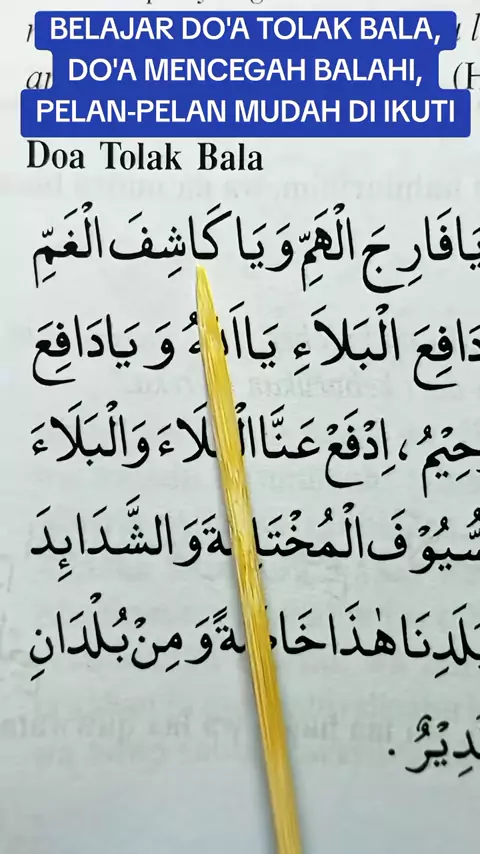 BELAJAR DO'A TOLAK BALA,
DO'A MENCEGAH BALAHI,
PELAN-PELAN MUDAH DI IKUTI
Doa Tolak Bala
يَافَارِجَ الْهَمِّ وَيَا كَاشِفَ الْغَمِّ
دَافِعَ الْبَلَاَءِ يَااَللّٰهُ وَ يَادَافِعَ
اِدْفَعْ عَنَّاالْبَلَاءَ وَالْبَلَاءَ
الْمُخْتَلِفَةَ وَالشَّدَائِدَ
بَلَدِنَا هٰذَا خَاصَّةً وَ مِنْ بُلْدَانِ